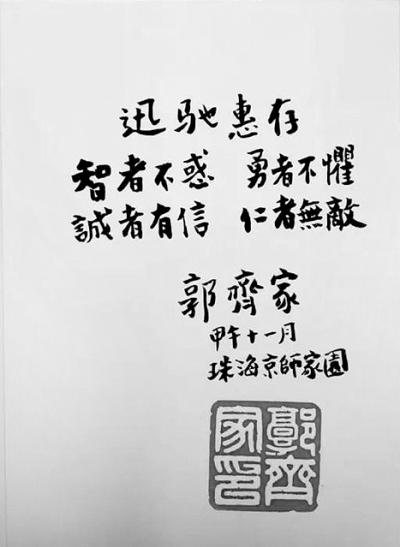 迅馳惠存
智者不惑 勇者不懼
誠者有信 仁者無敵
郭齊家
甲午十一月
珠海京師家園
郭齊家印